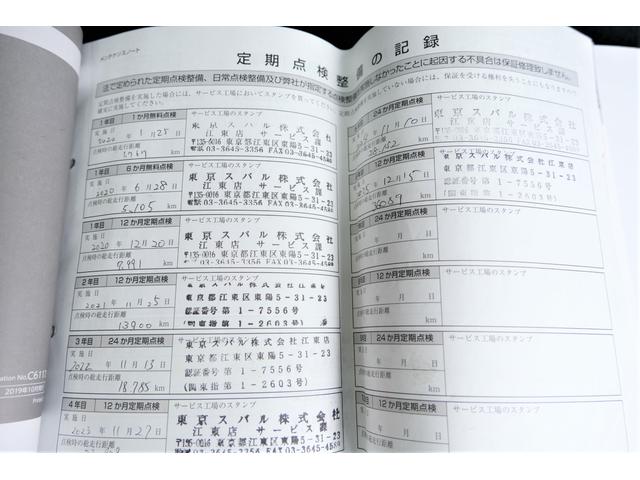 メンテナンスノート
定期点検整備の記録
法で定められた定期点検整備、日常点検整備及び弊社が指定する点検整備を実施しなかったことに起因する不具合は保証修理致しません。
定期点検整備を実施した場合には、サービス工場においてスタンプを貰ってください。
1年目 1か月無料点検 サービス工場のスタンプ
実施日
1月25日
点検時の総走行距離
km
東京スバル株式会社
江東店 サービス課
〒135-0016 東京都江東区東陽5-31-23
電話03-3645-3356 FAX03-3645-4583
1年目 6か月無料点検 サービス工場のスタンプ
実施日
2020年6月28日
点検時の総走行距離
5,105 km
東京スバル株式会社
江東店 サービス課
〒135-0016 東京都江東区東陽5-31-23
電話03-3645-3356 FAX03-3645-4583
1年目 12か月定期点検 サービス工場のスタンプ
実施日
2020年12月20日
点検時の総走行距離
7,991 km
東京スバル株式会社
江東店 サービス課
〒135-0016 東京都江東区東陽5-31-23
電話03-3645-3356 FAX03-3645-4583
2年目 12か月定期点検 サービス工場のスタンプ
実施日
2021年11月25日
点検時の総走行距離
13900 km
東京スバル株式会社江東店
東京都江東区東陽5-31-23
認証番号第1-7556号
(関東指第1-2603号)
3年目 24か月定期点検 サービス工場のスタンプ
実施日
2022年11月13日
点検時の総走行距離
18,785 km
東京スバル株式会社江東店
東京都江東区東陽5-31-23
認証番号第1-7556号
(関東指第1-2603号)
4年目 12か月定期点検 サービス工場のスタンプ
実施日
2023年11月27日
点検時の総走行距離
km
東京スバル株式会社
江東店 サービス課
〒135-0016 東京都江東区東陽5-31-23
電話03-3645-3356 FAX03-3645-4583
24か月定期点検 サービス工場のスタンプ
11月10日
28,152 km
東京スバル株式会社
江東店 サービス課
〒135-0016 東京都江東区東陽5-31-23
電話03-3645-3356 FAX03-3645-4583
12か月定期点検 サービス工場のスタンプ
12月15日
km
東京スバル株式会社江東店
東京都江東区東陽5-31-23
認証番号第1-7556号
(関東指第1-2603号)
24か月定期点検 サービス工場のスタンプ
年 月 日
点検時の総走行距離
km
12か月定期点検 サービス工場のスタンプ
年 月 日
点検時の総走行距離
km
24か月定期点検 サービス工場のスタンプ
実施日
年 月 日
点検時の総走行距離
km
12か月定期点検 サービス工場のスタンプ
実施日
年 月 日
点検時の総走行距離
km
2019年10月